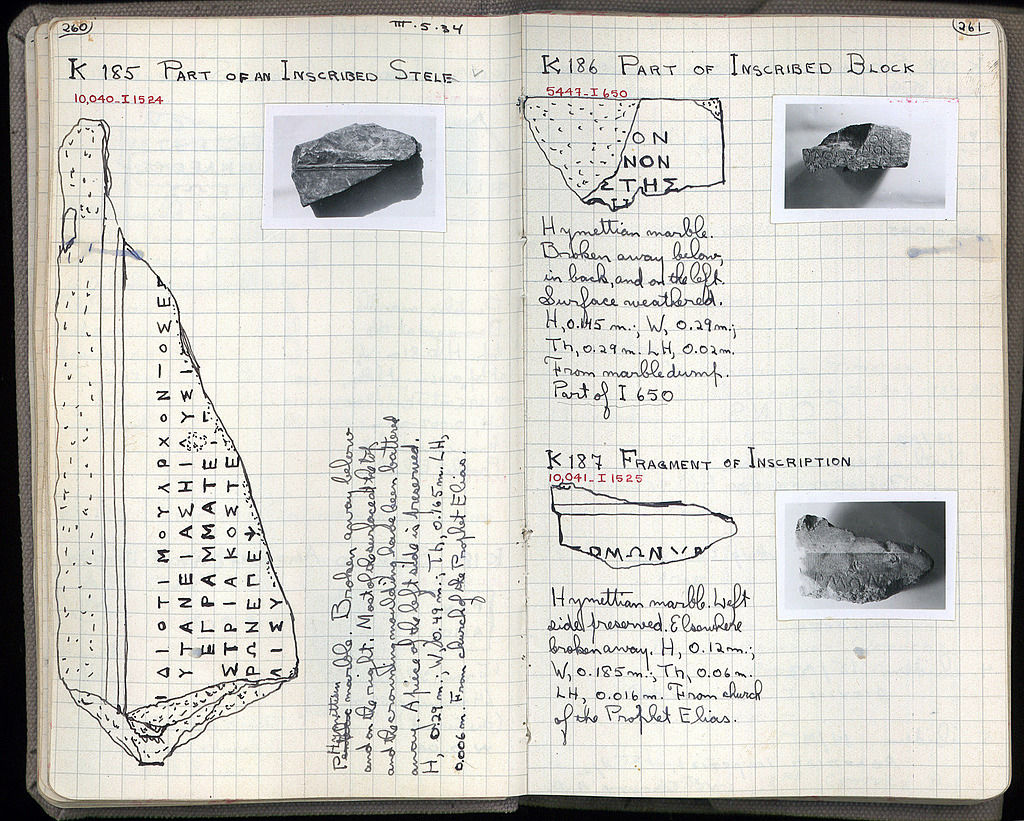 260
III.5.34
K 185 PART OF AN INSCRIBED STELE
10,040-I 1524
ΙΔΙΟΤΙΜΟΥΑΡΧΟΝ
ΥΤΑΝΕΙΑΣΗΙ
ΕΓΡΑΜΜΑΤΕ
ΣΤΡΙΑΚΟΣΤΕ
ΡΩΝΕΠΕ
ΛΙΣΥ
Hymettian marble. Broken away below
and on the right. Most of the surface at the top
and the crowning moulding have been battered
away. A piece of the left side is preserved.
H, 0.29 m.; W, 0.49 m.; Th, 0.165 m. LH,
0.006 m. From church of the Prophet Elias.
261
K 186 PART OF INSCRIBED BLOCK
5447-I 650
ΟΝ
ΝΟΝ
ΣΤΗΣ
Hymettian marble.
Broken away below,
in back, and on the left.
Surface weathered.
H, 0.145 m.; W, 0.29 m.;
Th, 0.29 m. LH, 0.02 m.
From marble dump.
Part of I 650
K 187 FRAGMENT OF INSCRIPTION
10,041-I 1525
ΟΜΩΝ
Hymettian marble. Left
side preserved. Elsewhere
broken away. H, 0.12 m.;
W, 0.185 m.; Th, 0.06 m.
LH, 0.016 m. From church
of the Prophet Elias.